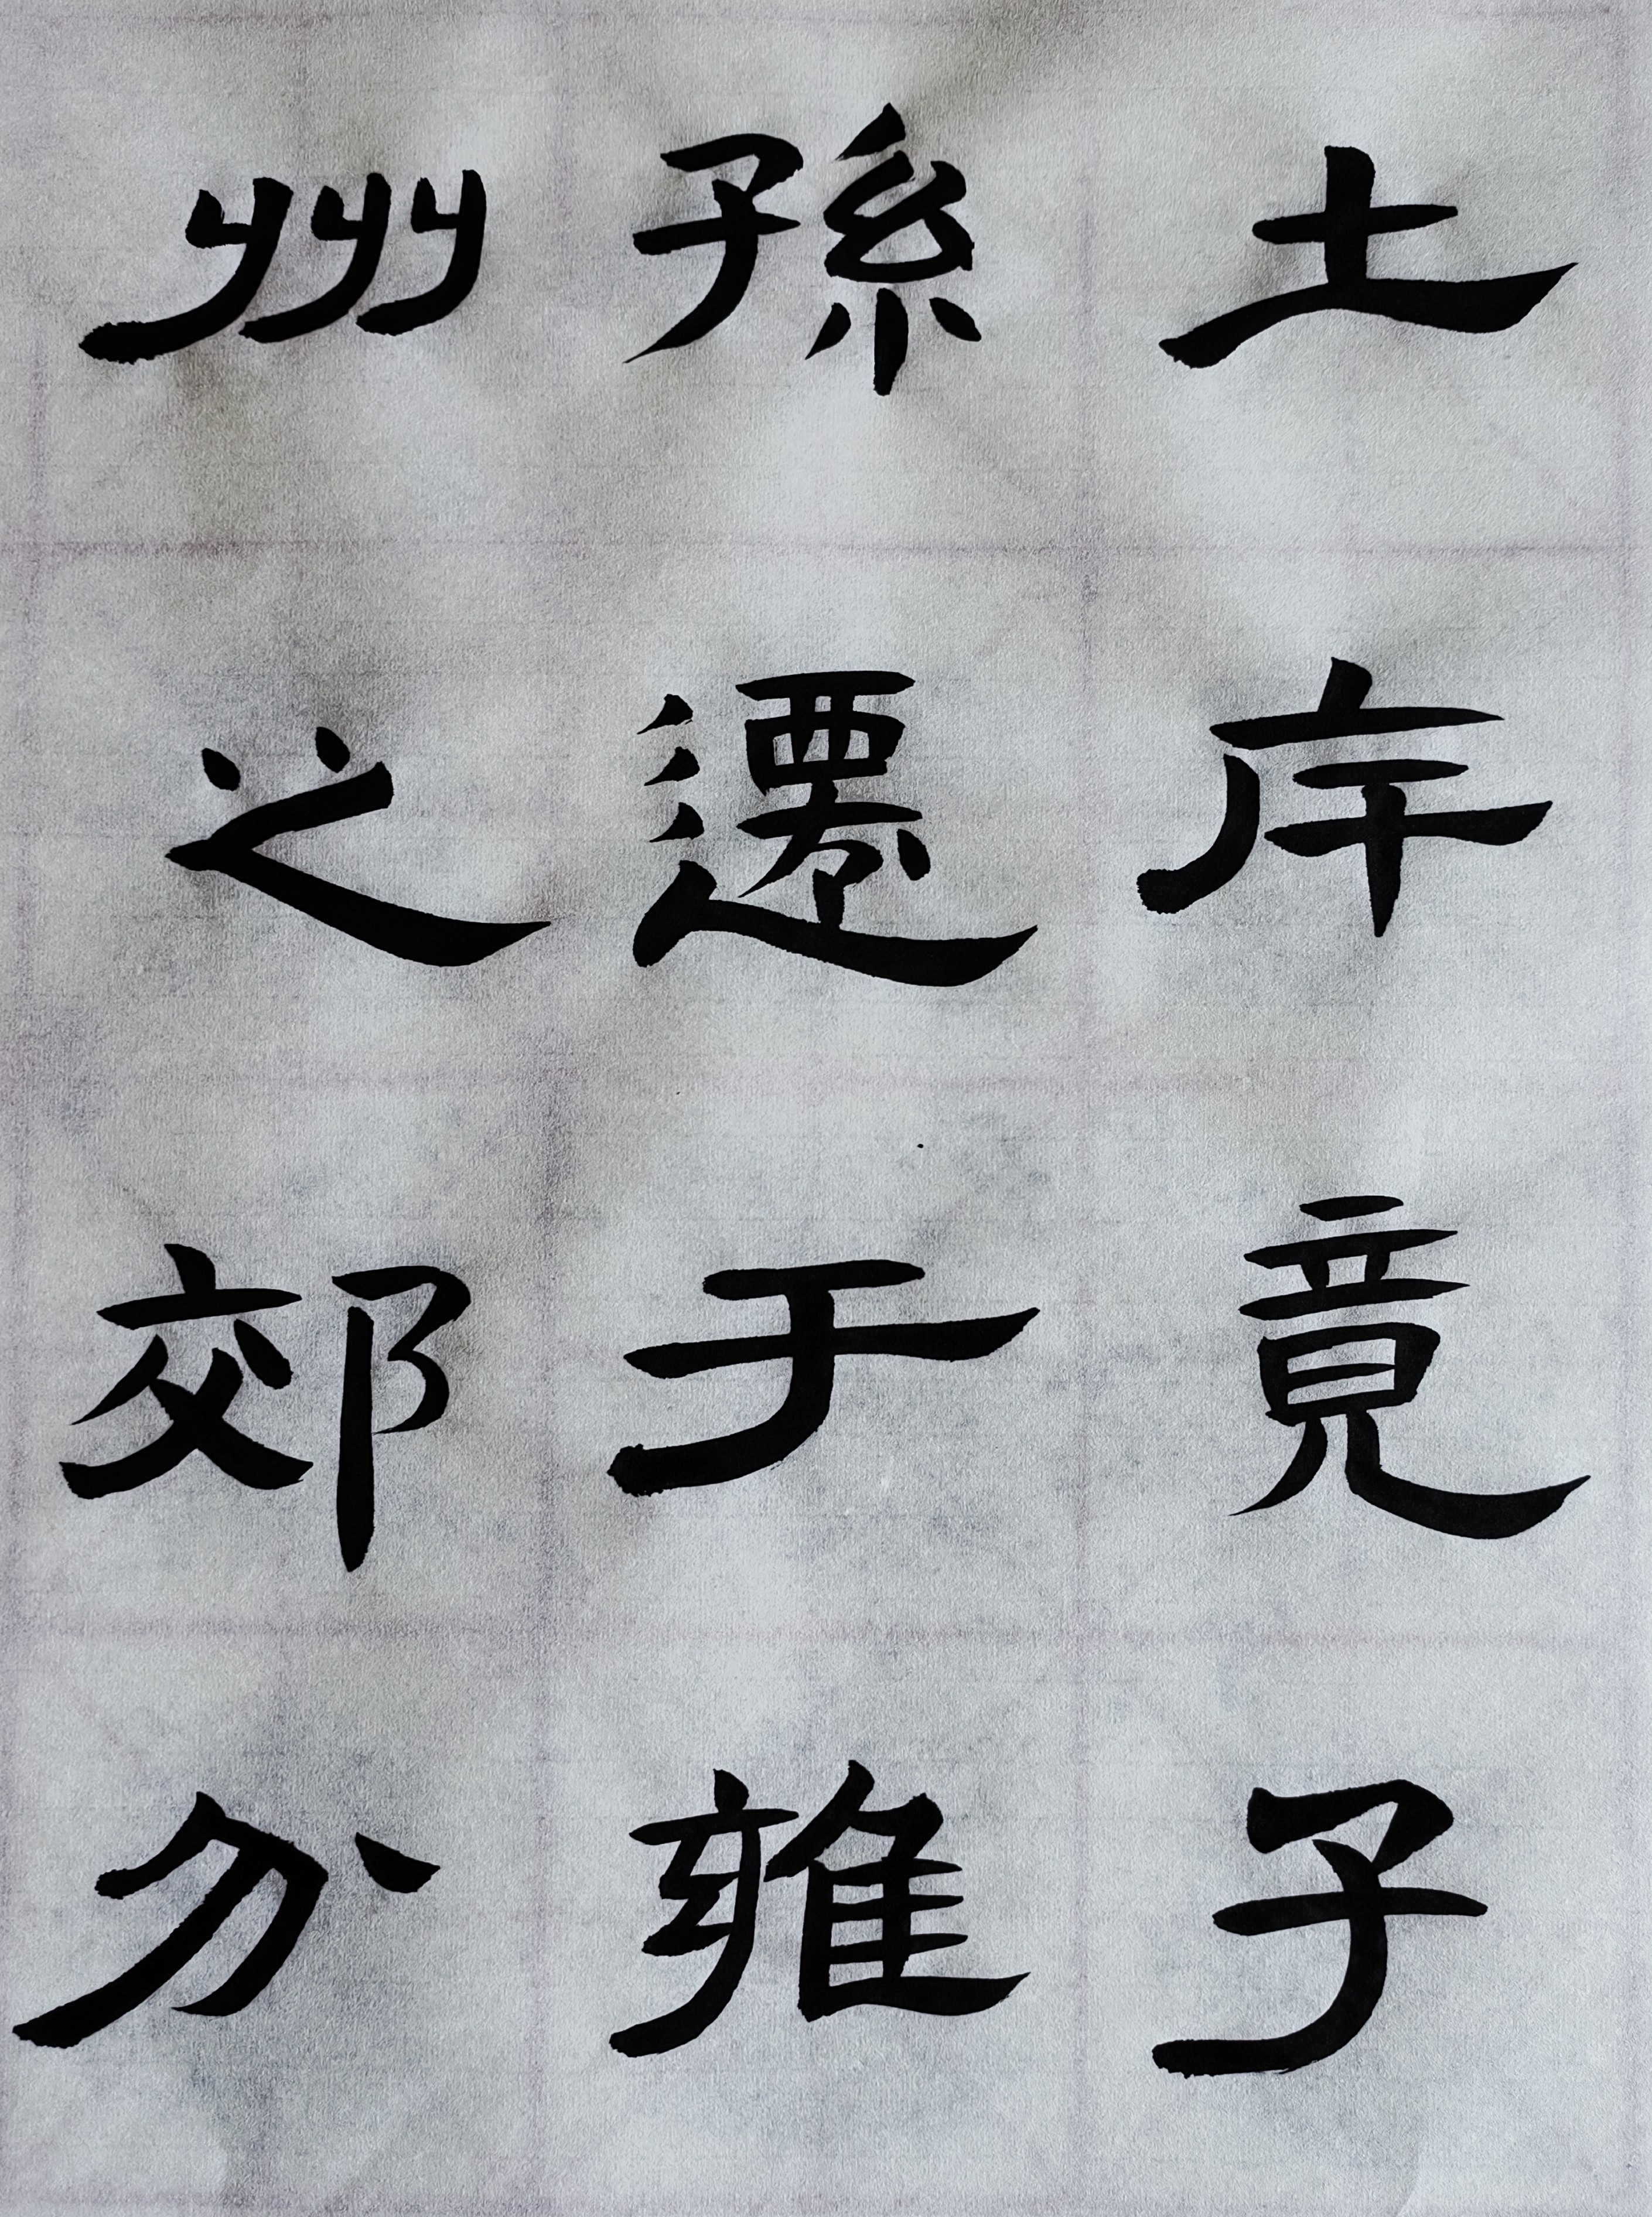 土斥竟子
孫遷于雍
州之郊分